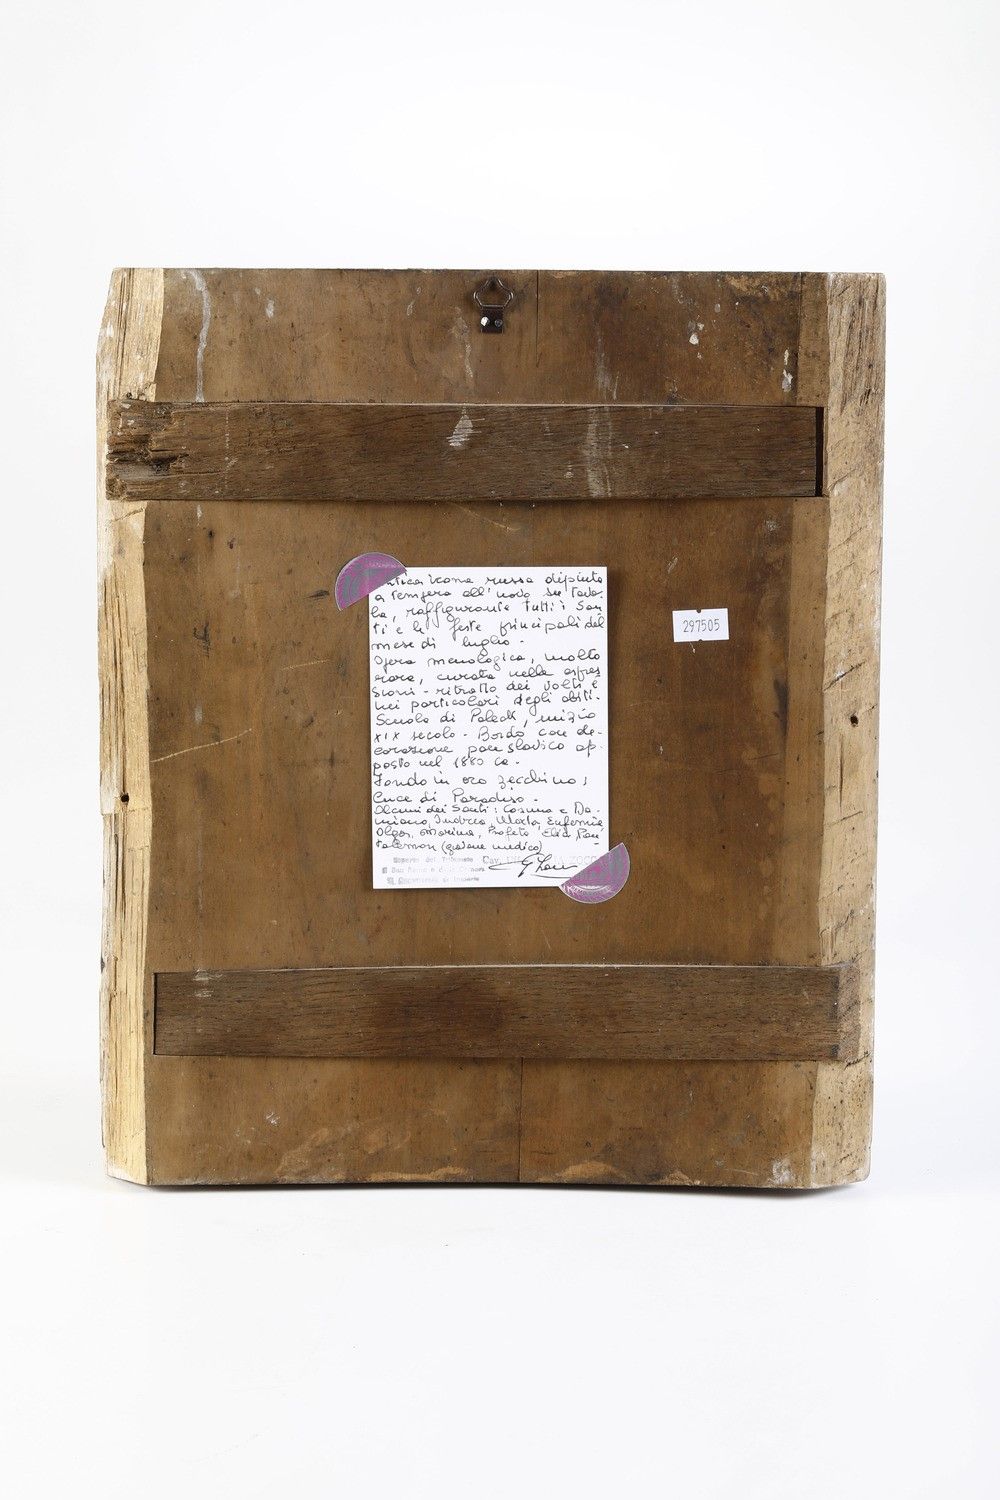 icona russa dipinta
a tempera all'uovo su tavo-
la, raffigurante tutti i San
ti e le feste principali del
mese di luglio -
Opera menologica, molto
rara, curata nelle espres
sioni - ritratto dei volti e
nei particolari degli abiti -
Scuola di Palech, inizio
XIX secolo - Bordo con de-
corazione pan slavico ap-
posto nel 1880 ca -
Fondo in oro zecchino;
Luce di Paradiso -
Alcuni dei Santi: Cosma e Da-
miano, Andrea, Marta, Eufemia
Olga, Marina, Profeta Elia Pan-
talemon (giovane medico)
del Tribunale Cav.
297505